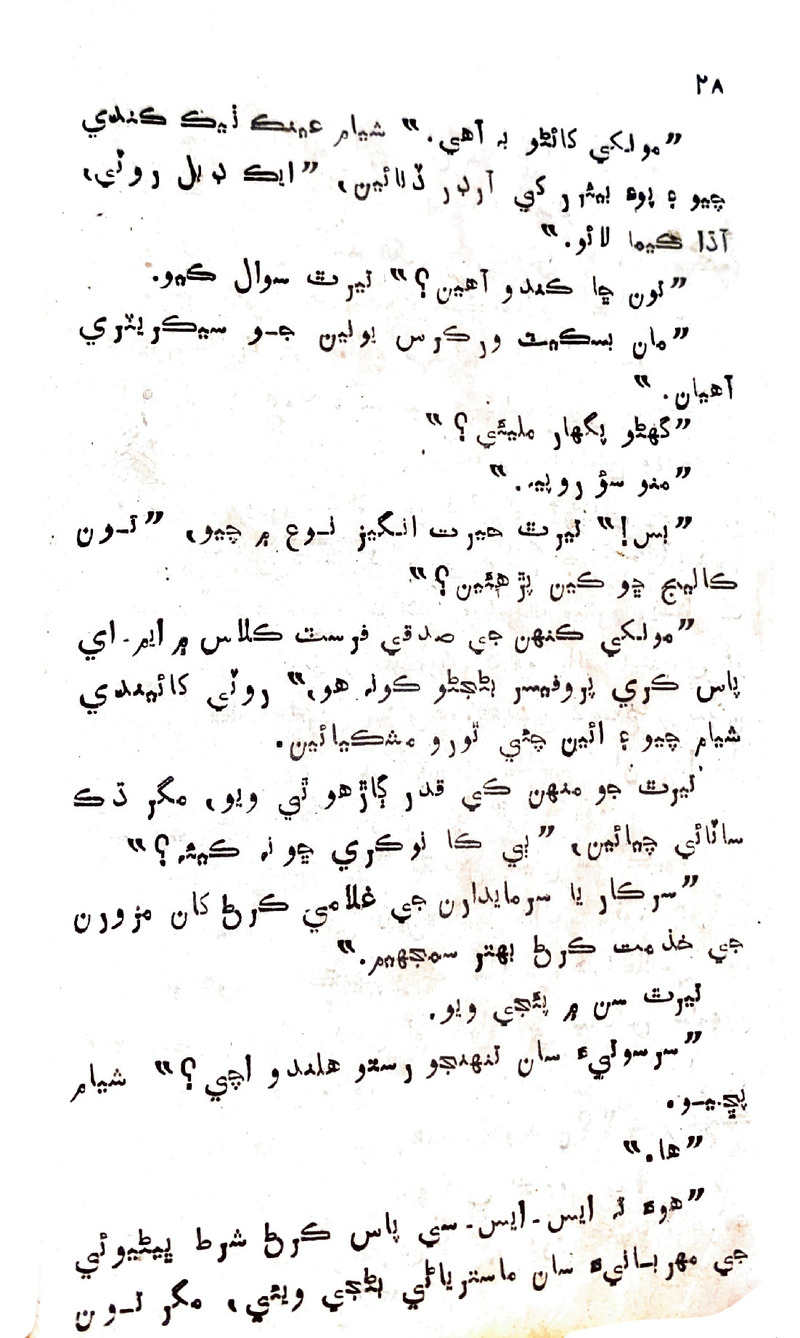 ۲۸
”مولکي کائڻو بہ آهي.“ شيام عينڪ ٺيڪ ڪندي
چيو ۽ پوءِ بيئرر کي آرڊر ڏنائين، ”ايڪ ڊبل روٽي،
آڌا ڪيما لائو.“
”تون ڇا ڪندو آهين؟“ تيرٿ سوال ڪيو.
”مان بسڪيٽ ورڪرس يونين جـو سيڪريٽري
آهيان.“
”گهڻو پگهار مليئي؟“
”منو سؤ روپيہ.“
”بس!“ تيرٿ حيرت انگيز نـوع ۾ چيو، ”تـون
ڪاليج ڇو ڪين پڙهئين؟“
”مولکي ڪنهن جي صدقي فرسٽ ڪلاس ۾ ايم۔اي
پاس ڪري پروفيسر بڻجڻو ڪونہ هو،“ روٽي کائيندي
شيام چيو ۽ ائين چئي ٿورو مشڪيائين.
تيرٿ جو منهن کي قدر ڳاڙهو ٿي ويو، مگر ڌڪ
ساٽائي چيائين، ”ٻي ڪا نوڪري ڇو نہ ڪيئہ؟“
”سرڪار يا سرمايدارن جي غلامي ڪرڻ کان مزورن
جي خذمت ڪرڻ بهتر سمجهيم.“
تيرٿ سن ۾ پئجي ويو.
”سرسوتيءَ سان تنهنجو رستو هلندو اچي؟“ شيام
پڇـيـو.
”ها.“
”هوءَ تہ ايس۔ايس۔سي پاس ڪرڻ شرط ڀيڻيوئي
جي مهربـانيءَ سان ماسترياڻي بڻجي ويئي، مگر تـون